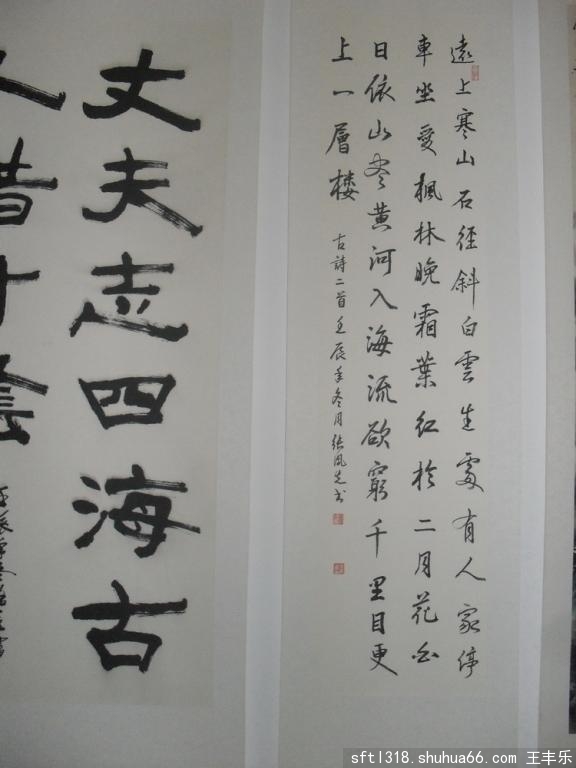 遠上寒山石徑斜白雲生處有人家停
車坐愛楓林晚霜葉紅於二月花白
日依山盡黄河入海流欲窮千里目更
上一層楼
古詩二首壬辰年冬月張鳳先书
丈夫志四海古
人惜寸陰
sftl318.shuhua66.com 王丰乐